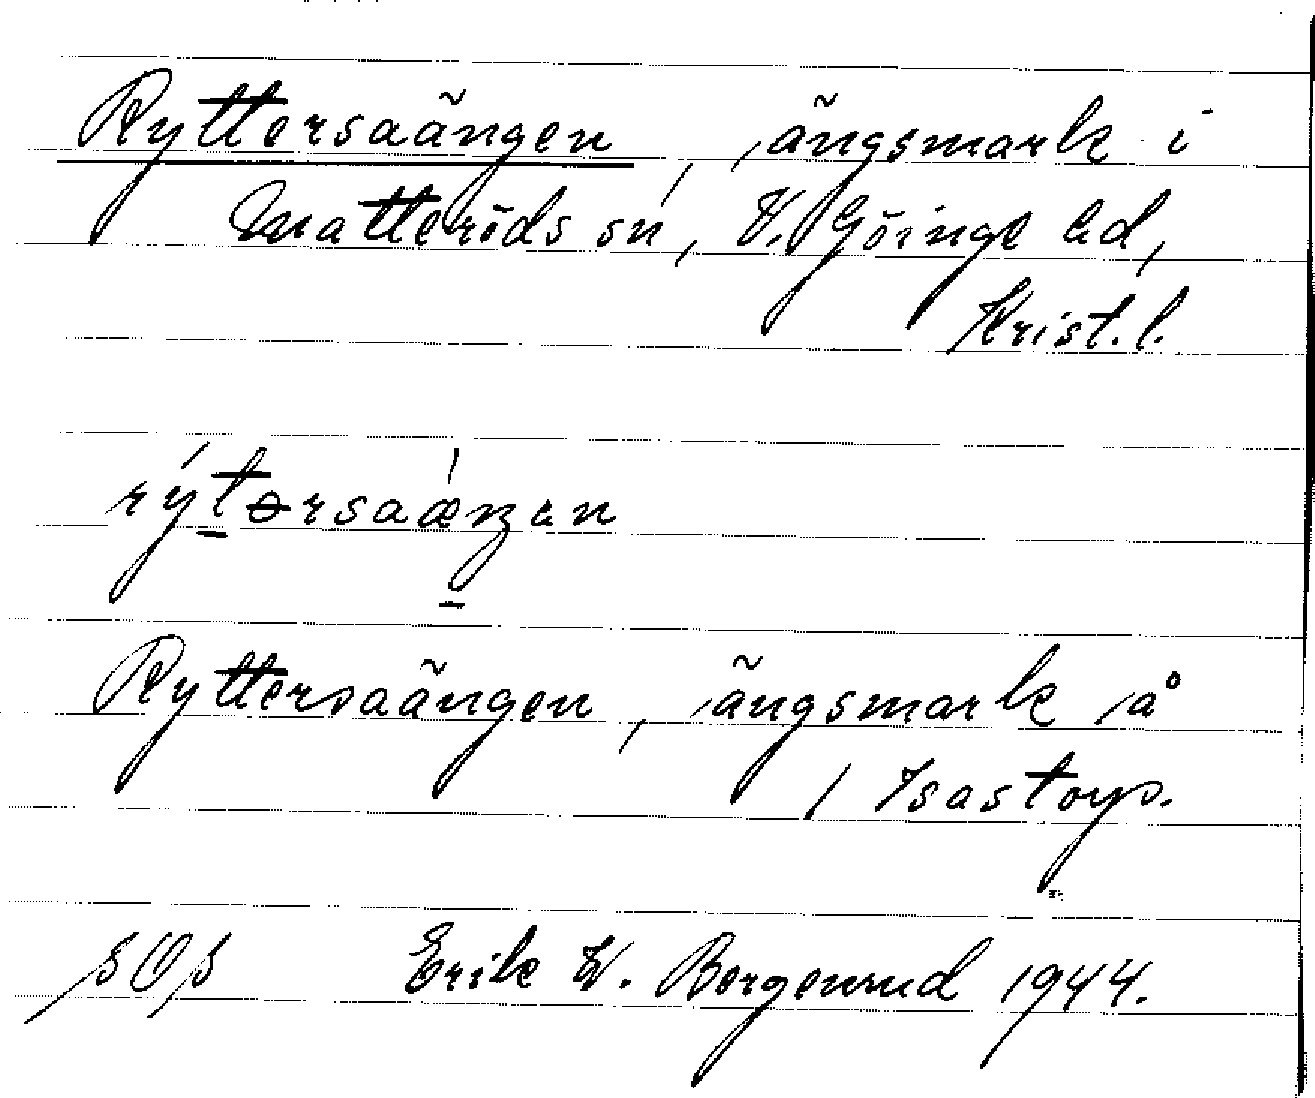 Ryttersaängen, ängsmark i
Matteröds sn, V. Göinge hd,
Krist.l.
rýtərsaǽŋən
Ryttersaängen, ängsmark å
Isastorp.
SOS Erik W. Bergenrud 1944.